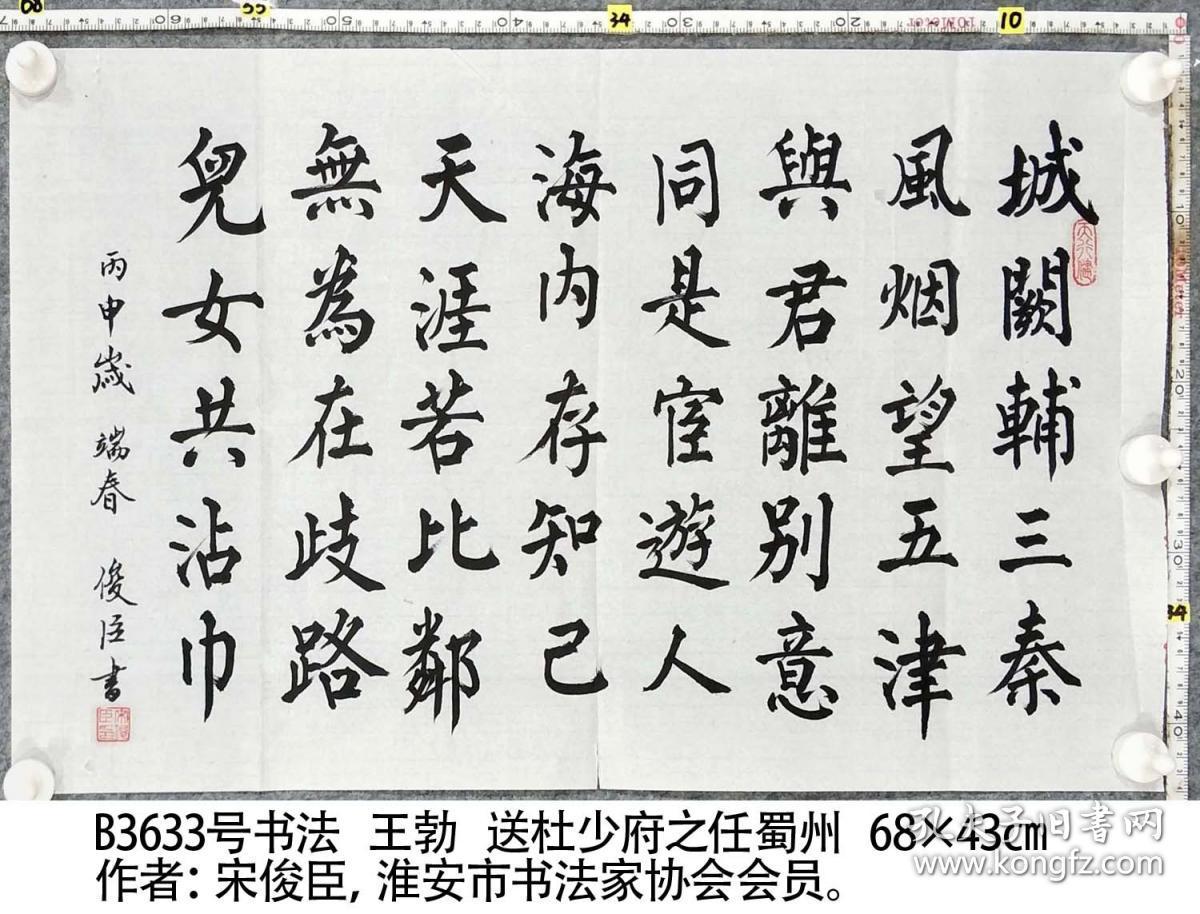 城闕輔三秦
風烟望五津
與君離別意
同是宦遊人
海内存知己
天涯若比鄰
無為在歧路
兒女共沾巾
丙申歲 端春 俊臣書
B3633号书法 王勃 送杜少府之任蜀州 68×43cm
作者：宋俊臣，淮安市书法家协会会员。
孔夫子旧书网
www.kongfz.com
68
55
34
10
34